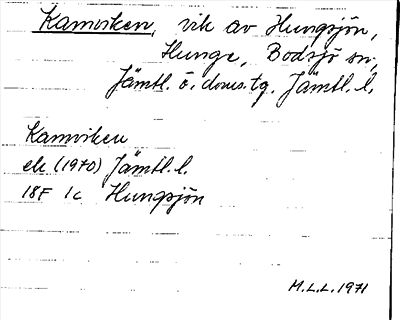 Kamviken, vik av Hungsjön,
Hunge, Bodsjö sn,
Jämtl. ö. doms.tg. Jämtl. l.
Kamviken
ek (1970) Jämtl. l.
18F 1c Hungsjön
M.L.L. 1971